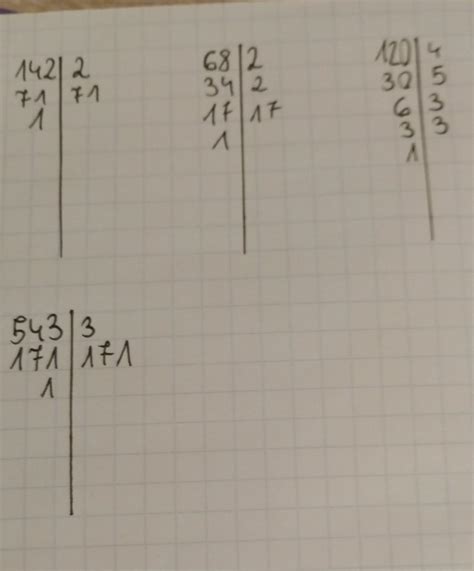 142 | 2
71 | 71
1
68 | 2
34 | 2
17 | 17
1
120 | 4
30 | 5
6 | 3
3 | 3
1
543 | 3
171 | 171
1